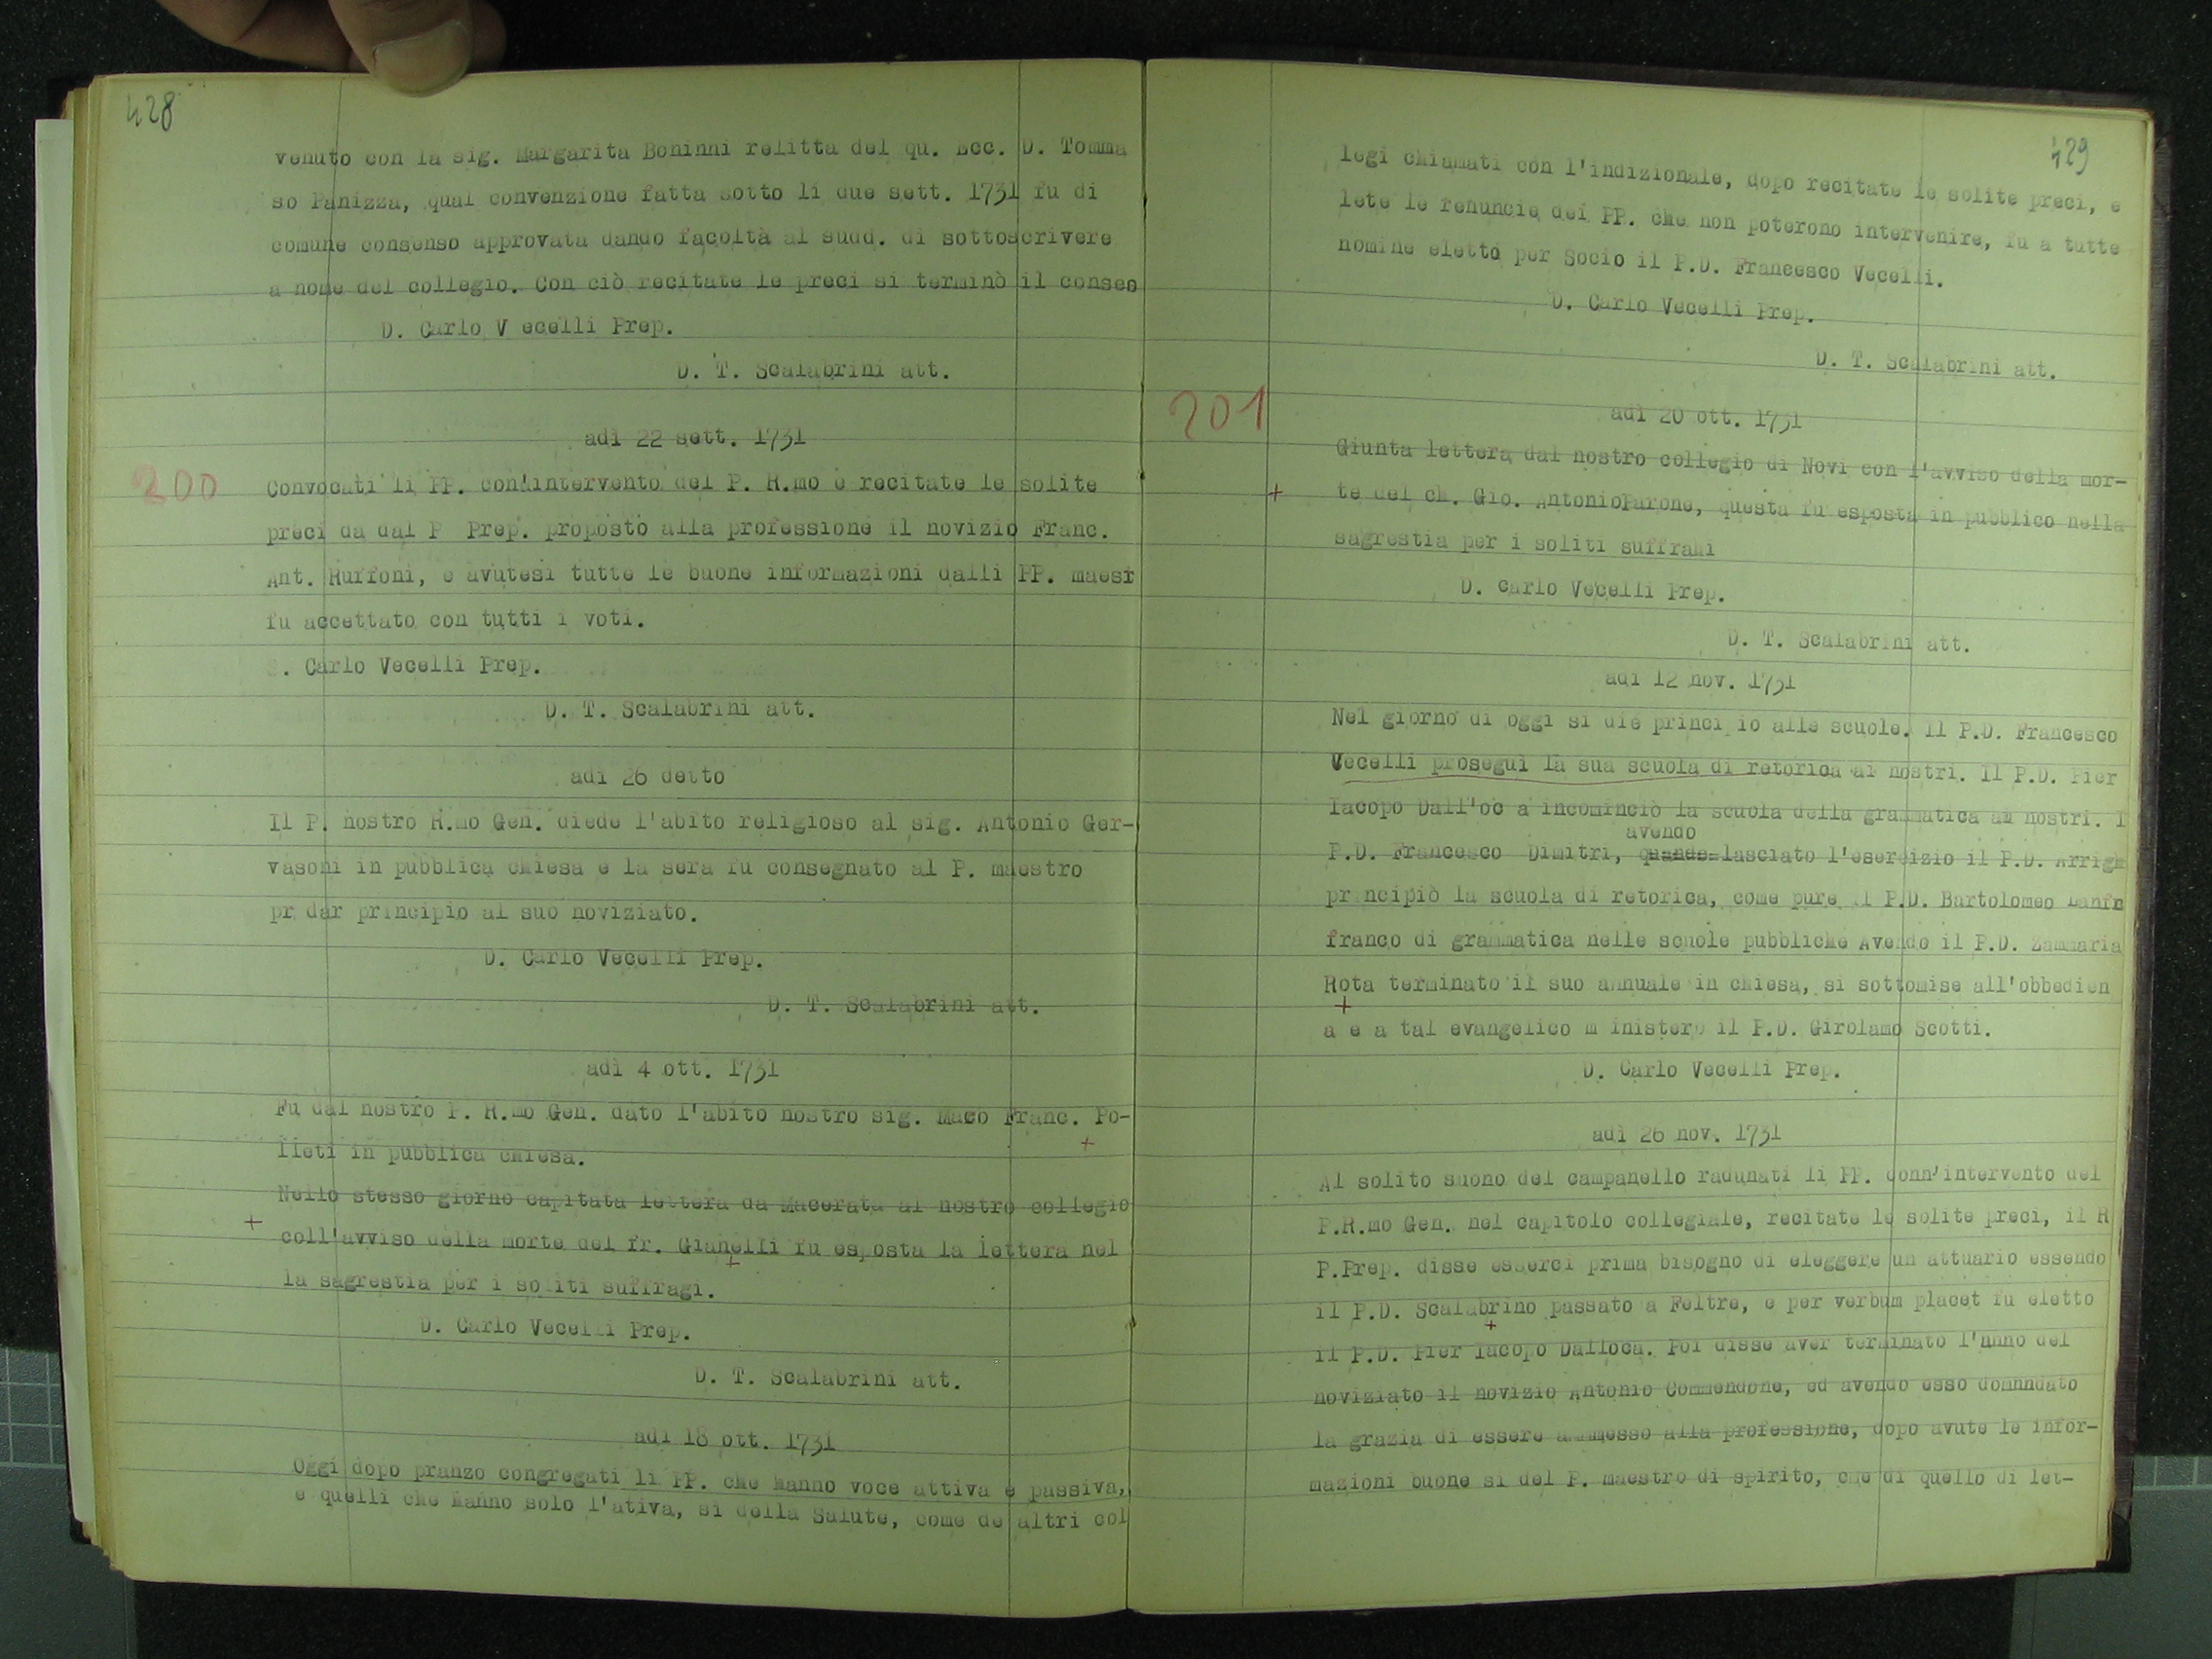 428
venuto con la sig. Margarita Boninni relitta del qu. Ecc. D. Tomma
so Panizza, qual convenzione fatta sotto li due sett. 1731 fu di
comune consenso approvata dando facoltà al sudd. di sottoscrivere
a nome del collegio. Con ciò recitate le preci si terminò il conseo
D. Carlo V ecelli Prep.
D. T. Scalabrini att.
adì 22 sett. 1731
200
Convocati li PP. con'intervento del P. R.mo e recitate le solite
preci da dal P Prep. proposto alla professione il novizio Franc.
Ant. Ruffoni, e avutesi tutte le buone informazioni dalli PP. maesr
fu accettato con tutti i voti.
. Carlo Vecelli Prep.
D. T. Scalabrini att.
adì 26 detto
Il P. nostro R.mo Gen. diede l'abito religioso al sig. Antonio Ger-
vasoni in pubblica chiesa e la sera fu consegnato al P. maestro
pr dar principio al suo noviziato.
D. Carlo Vecelli Prep.
D. T. Scalabrini att.
adì 4 ott. 1731
Fu dal nostro P. R.mo Gen. dato l'abito nostro sig. Maco Franc. Po-
+
lleti in pubblica chiesa.
Nello stesso giorno capitata lettera da Macerata al nostro collegio
+
coll'avviso della morte del fr. Gianelli fu esposta la lettera nel
+
la sagrestia per i soliti suffragi.
D. Carlo Vecelli Prep.
D. T. Scalabrini att.
adì 18 ott. 1731
Oggi dopo pranzo congregati li PP. che hanno voce attiva e passiva,
e quelli che hanno solo l'ativa, si della Salute, come de altri col
429
legi chiamati con l'indizionale, dopo recitate le solite preci, e
lete le renuncie dei PP. che non poterono intervenire, fu a tutte
nomine eletto per Socio il P.D. Francesco Vecelli.
D. Carlo Vecelli Prep.
D. T. Scalabrini att.
201
adì 20 ott. 1731
Giunta lettera dal nostro collegio di Novi con l'avviso della mor-
+
te del ch. Gio. AntonioParone, questa fu esposta in pubblico nella
sagrestia per i soliti suffrahi
D. Carlo Vecelli Prep.
D. T. Scalabrini att.
adì 12 nov. 1731
Nel giorno di oggi si diè princi io alle scuole. Il P.D. Francesco
Vecelli proseguì la sua scuola di retorica ai nostri. Il P.D. Pier
Iacopo Dall'oc a incominciò la scuola della grammatica am nostri. I
avendo
P.D. Francesco Dimitri, quando lasciato l'esercizio il P.D. Arrigh
principiò la scuola di retorica, come pure il P.D. Bartolomeo Lanfr
franco di grammatica nelle scuole pubbliche Avendo il P.D. Zammaria
Rota terminato il suo annuale in chiesa, si sottomise all'obbedien
+
a e a tal evangelico m inistero il P.D. Girolamo Scotti.
D. Carlo Vecelli Prep.
adì 26 nov. 1731
Al solito suono del campanello radunati li PP. conn'intervento del
P.R.mo Gen. nel capitolo collegiale, recitate le solite preci, il R
P.Prep. disse esserci prima bisogno di eleggere un attuario essendo
il P.D. Scalabrino passato a Feltre, e per verbum placet fu eletto
+
il P.D. Pier Iacopo Dalloca. Poi disse aver terminato l'anno del
noviziato il novizio Antonio Commendone, ed avendo esso domandato
la grazia di essere ammesso alla professione, dopo avute le infor-
mazioni buone si del P. maestro di spirito, che di quello di let-